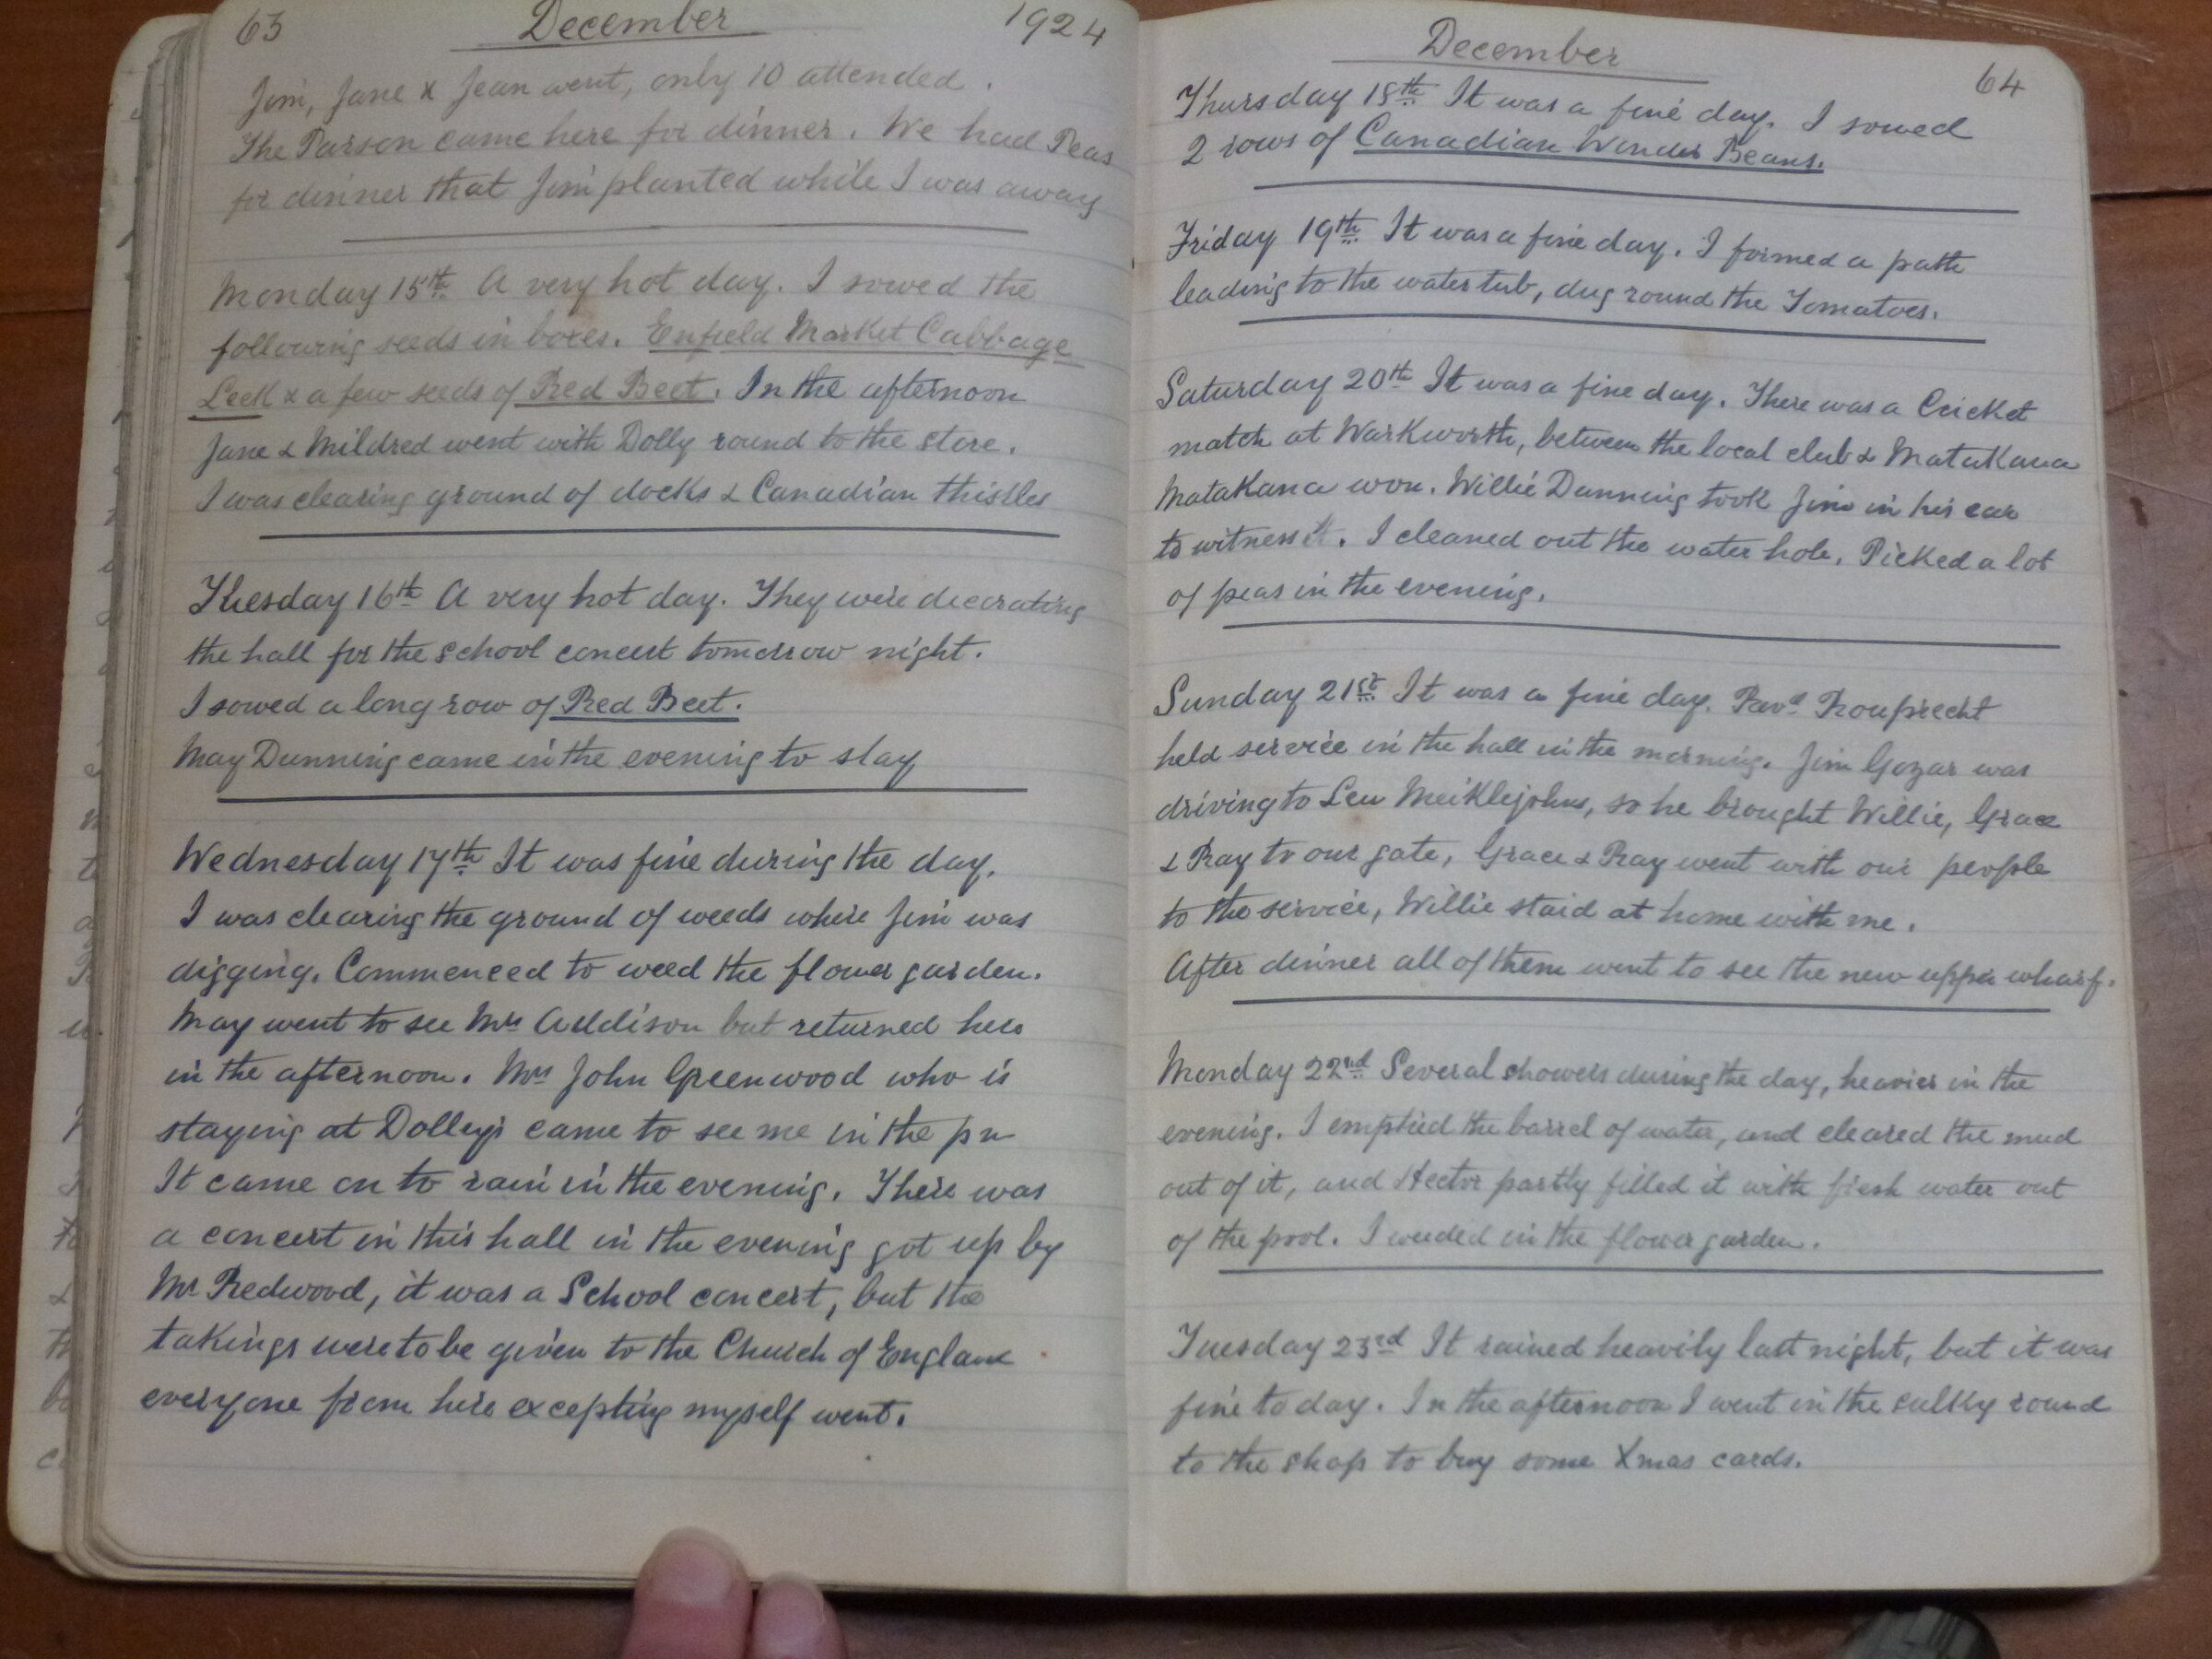 63 December 1924
Jim, Jane & Jean went, only 10 attended.
The Parson came here for dinner. We had Peas
for dinner that Jim planted while I was away
Monday 15th A very hot day. I sowed the
following seeds in boxes. Enfield Market Cabbage
Leek & a few seeds of Red Beet. In the afternoon
Jane & Mildred went with Dolly round to the store.
I was clearing ground of docks & Canadian thistles
Tuesday 16th A very hot day. They were decorating
the hall for the school concert tomorrow night.
I sowed a long row of Red Beet.
May Dunning came in the evening to stay
Wednesday 17th It was fine during the day.
I was clearing the ground of weeds where Jim was
digging. Commenced to weed the flower garden.
May went to see Mrs Addison but returned here
in the afternoon. Mrs John Greenwood who is
staying at Dolly's came to see me in the
It came on to rain in the evening. There was
a concert in this hall in the evening got up by
Mr Redwood, it was a School concert, but the
takings were to be given to the Church of England
everyone from here excepting myself went.
December 64
Thursday 18th It was a fine day. I sowed
2 rows of Canadian Wonder Beans.
Friday 19th It was a fine day. I formed a path
leading to the water tub, dug round the Tomatoes.
Saturday 20th It was a fine day. There was a Cricket
match at Warkworth, between the local club & Matakana
Matakana won. Willie Dunning took Jim in his car
to witness it. I cleaned out the water hole. Picked a lot
of peas in the evening.
Sunday 21st It was a fine day. Revd Rouprecht
held service in the hall in the morning. Jim Gozar was
driving to Len Meiklejohns, so he brought Willie, Grace
& Ray to our gate, Grace & Ray went with our people
to the service, Willie staid at home with me.
After dinner all of them went to see the new upper wharf.
Monday 22nd Several showers during the day, heavier in the
evening. I emptied the barrel of water, and cleared the mud
out of it, and Hector partly filled it with fresh water out
of the pool. I weeded in the flower garden.
Tuesday 23rd It rained heavily last night, but it was
fine today. In the afternoon I went in the sulky round
to the shop to buy some Xmas cards.